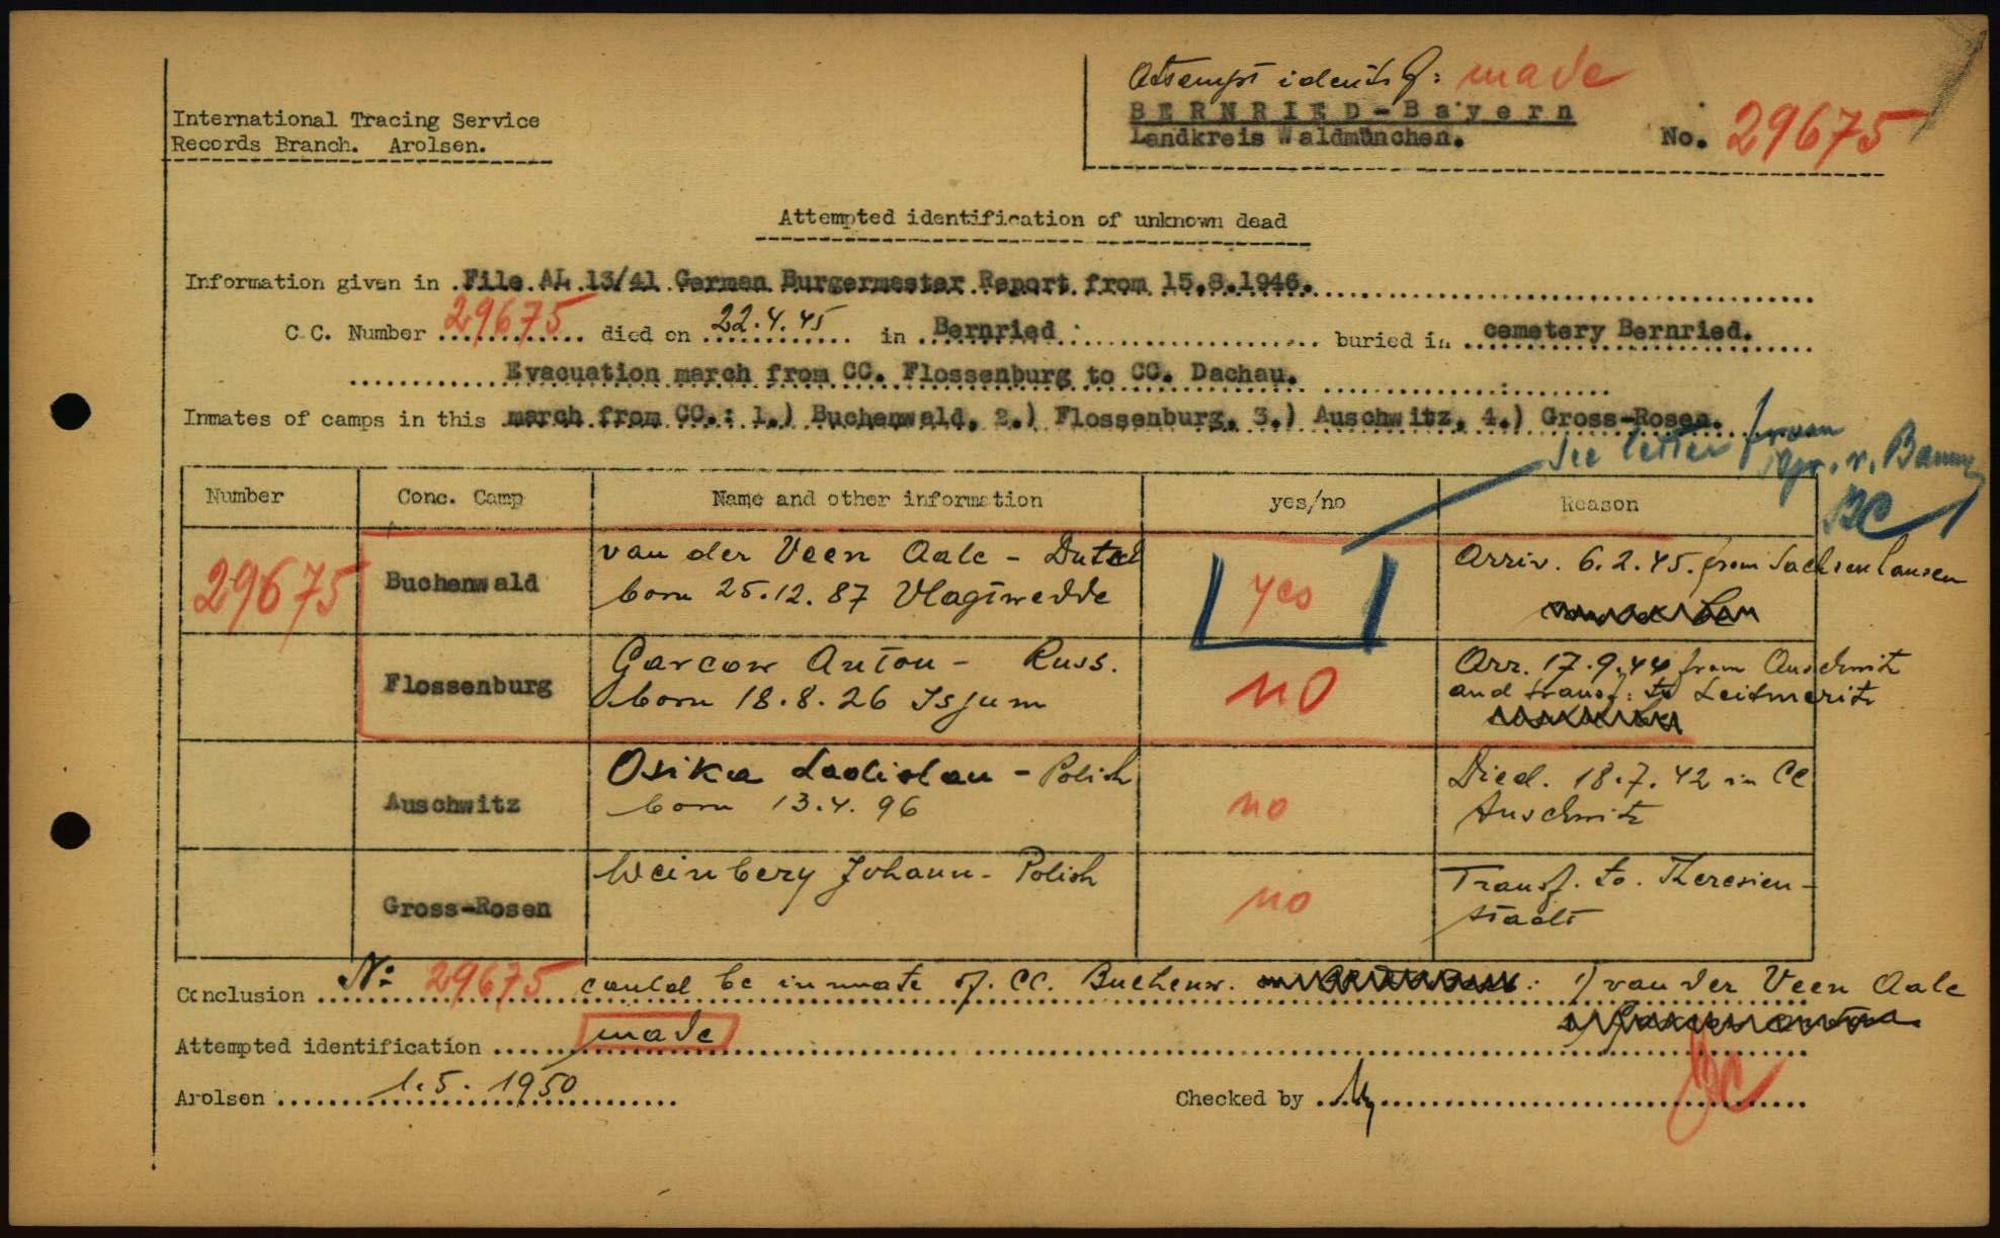 Attempt identif: made
BERNRIED-Bayern
Landkreis Waldmünchen. No. 29675
International Tracing Service
Records Branch. Arolsen.
Attempted identification of unknown dead
Information given in File AL 13/41 German Burgermester Report from 15.8.1946.
C.C. Number 29675 died on 22.4.45 in Bernried buried in cemetery Bernried.
Evacuation march from CC. Flossenburg to CC. Dachau.
Inmates of camps in this march from CC.: 1.) Buchenwald, 2.) Flossenburg, 3.) Auschwitz, 4.) Gross-Rosen.
See letter from
BC
Number Conc. Camp Name and other information yes/no Reason
29675 Buchenwald van der Veen Aale - Dutch yes Arriv. 6.2.45. from Sachsenhausen
born 25.12.87 Vlagtwedde
Flossenburg Garcow Anton - Russ. no Arr. 17.9.44 from Auschwitz
born 18.8.26 Isjum and transf: to Leitmeritz
Auschwitz Osika Ladislau - Polish no Died. 18.7.42 in CC
born 13.4.96 Auschwitz
Gross-Rosen Weinberg Johann - Polish no Transf. to. Theresien-
stadt
Conclusion No: 29675 could be inmate of. CC. Buchenw. : 1) van der Veen Aale
Attempted identification made
Arolsen 1.5.1950 Checked by